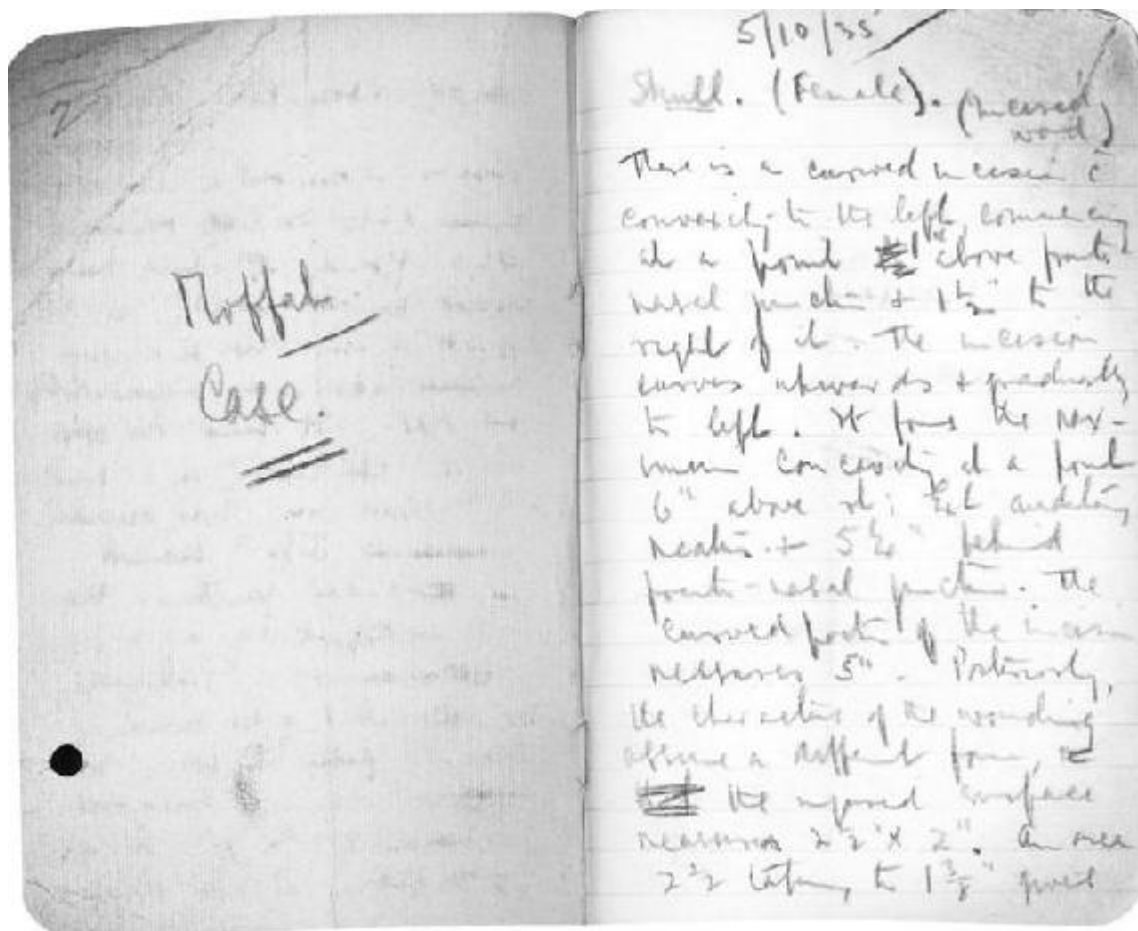 2
Moffat
Case.
5/10/35
Skull. (Female). (Incised
wound)
There is a curved incision c̄
convexity to the left, commencing
at a point 1" above fronto
nasal junction + 1½" to the
right of it. The incision
curves upwards + gradually
to left. It forms the max-
imum convexity at a point
6" above rt: ext auditory
meatus + 5¼" behind
fronto-nasal junction. The
curved part of the incision
measures 5". Posteriorly,
the character of the wounding
assume a different form,
the injured surface
measures 2½" x 2". An area
2½ tapering to 1⅜"